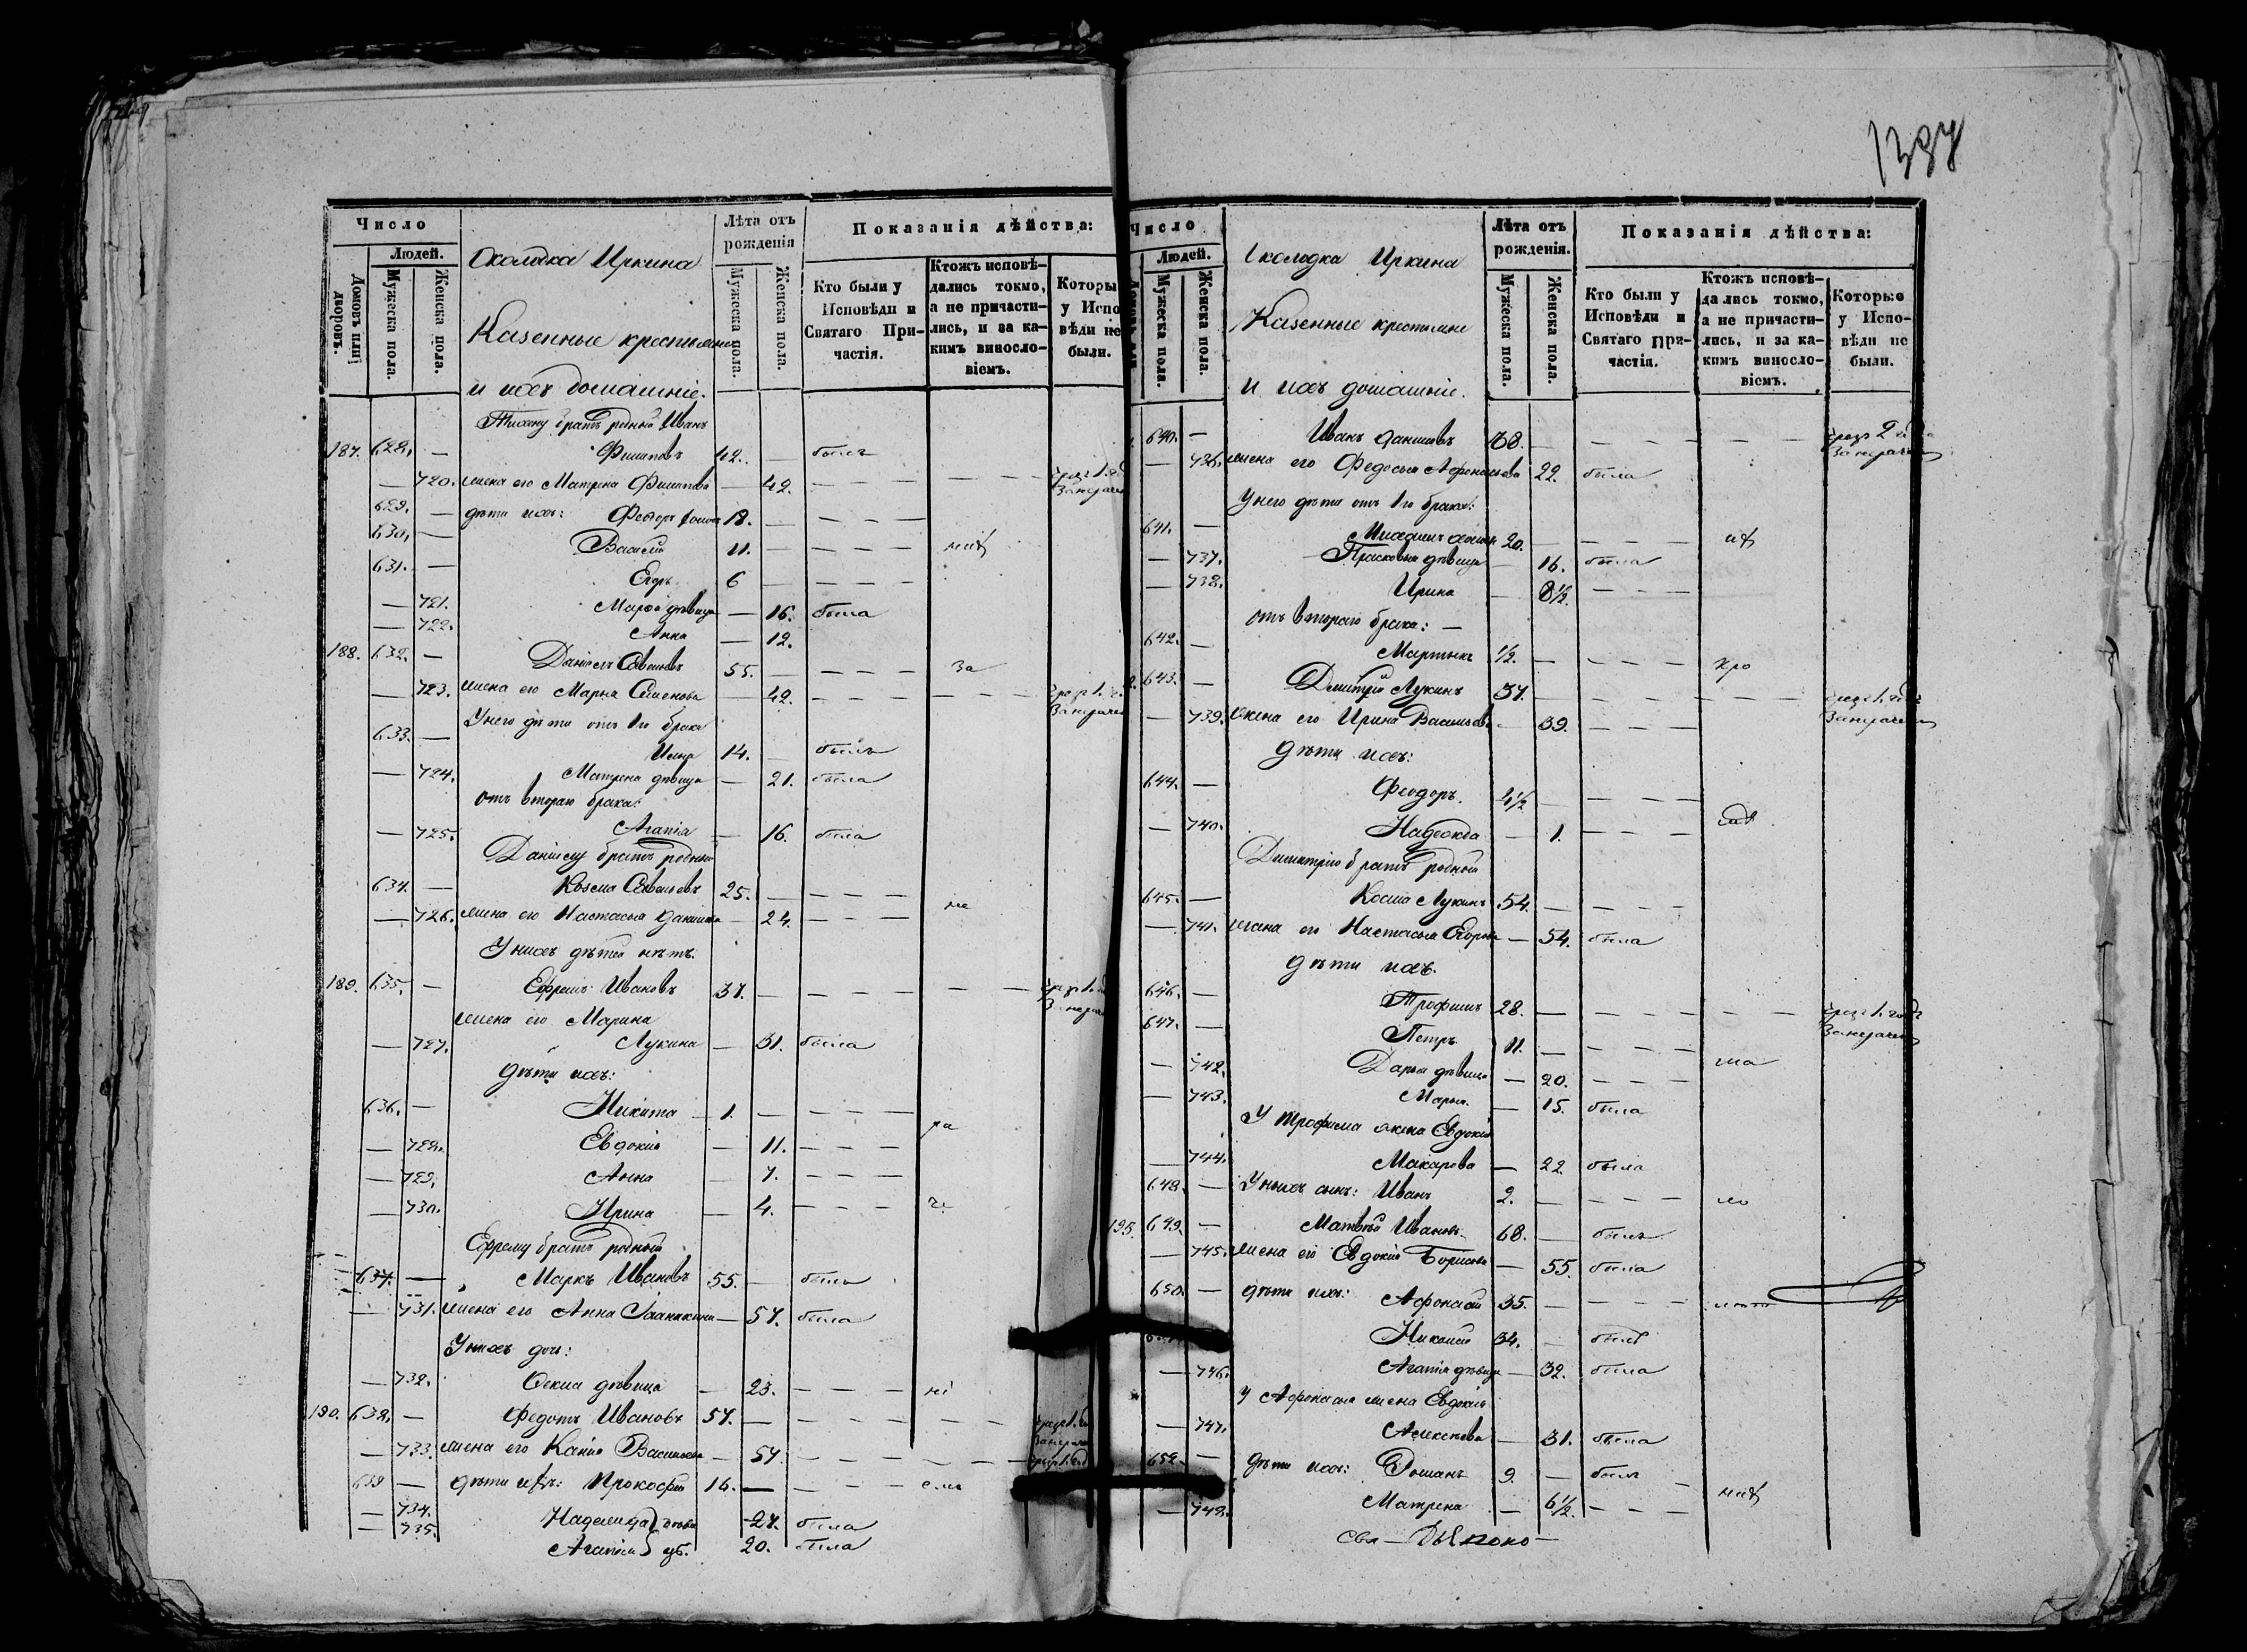 1397
Число
Людей.
Домовъ или дворовъ.
Мужеска пола.
Женска пола.
Околодка Иркина
Казенные крестьяне
и ихъ домашніе.
Лѣта отъ рожденія
Мужеска пола.
Женска пола.
Показанія дѣйства:
Кто были у Исповѣди и Святаго Причастія.
Ктожъ исповѣдались токмо, а не причастились, и за какимъ винословіемъ.
Которы у Испо вѣди не были.
Тихану братъ родный Иванъ
187. 628. — Филиповъ 42. — былъ
— 720. жена его Матрена Филипова — 42. — — —
629. — дѣти ихъ: Феодоръ 18. — — —
630. — Василій 11. — — —
631. — Егоръ 6 — — —
— 721. Марфа дѣвица — 16. была
— 722. Анна — 12.
188. 632. — Даніилъ 55. — — — за
— 723. жена его Марѳа Семенова — 42. — — —
У него дѣти отъ 1го брака
633. — 14. — былъ
— 724. Матрена дѣвица — 21. была
отъ втораго брака:
— 725. Агапія — 16. была
Даніилу братъ родный
634. — Козма 25. — — — не
— 726. жена его Настасья — 24. — — —
У нихъ дѣтей нѣтъ.
189. 635. — Ефремъ Ивановъ 37. — — —
жена его Марина
— 727. Лукина — 31. была
дѣти ихъ:
636. — Никита 1. — — — ра
— 728. Евдокія — 11. — — —
— 729. Анна — 7. — — —
— 730. Ирина — 4. — — —
Ефрему братъ родный
637. — Маркъ Ивановъ 55. — былъ
— 731. жена его Анна — 57. была
У нихъ дочь:
— 732. дѣвица — 23. — — —
190. 638. — Федотъ Ивановъ 57. — — —
— 733. жена его Васильева — 57. — — —
639 — дѣти ихъ: Прокофій 16. — — —
— 734. Надежда 27. была
— 735. Агапія 20. была
Число
Людей.
Мужеска пола.
Женска пола.
Околодка Иркина
Казенные крестьяне
и ихъ домашніе.
Лѣта отъ рожденія.
Мужеска пола.
Женска пола.
Показанія дѣйства:
Кто были у Исповѣди и Святаго Причастія.
Ктожъ исповѣдались токмо, а не причастились, и за какимъ винословіемъ.
Которые у Исповѣди не были.
640. — Иванъ 38. — — —
— 736. жена его Федосья Афонасьева 22. была
У него дѣти отъ 1го брака:
641. — Михаилъ 20. — — —
— 737. Прасковья дѣвица — 16. была
— 738. Ирина — 8½. — — —
отъ втораго брака: —
642. — Мартынъ ½. — — —
643. — Дмитрій Лукинъ 37. — — —
— 739. жена его Ирина Васильева — 39. — — —
дѣти ихъ:
644. — Феодоръ. 4½ — — —
— 740. Надежда — 1. — — —
Димитрію братъ родный
645. — Косма Лукинъ 54. — — —
— 741. жена его Настасья Егорова — 54. была
дѣти ихъ.
646. — Трофимъ 28. — — —
647. — Петръ 11. — — — ша
— 742. Дарья дѣвица — 20. — — —
— 743. Марья. — 15. была
У Трофима жена Евдокія
— 744. Макарова — 22 была
648. — У нихъ сынъ: Иванъ 2. — — —
649. — Матвѣй Ивановъ. 68. — былъ
— 745. жена его Евдокія Борисова — 55. была
650. — дѣти ихъ: Афонасій 35. — — —
Николай 34. — былъ
— 746. Агапія дѣвица — 32. была
У Афонасія жена Евдокія
— 747. Алексѣева — 31. была
652 — дѣти ихъ: Романъ 9. — былъ
— 748. Матрена — 6½. — — —